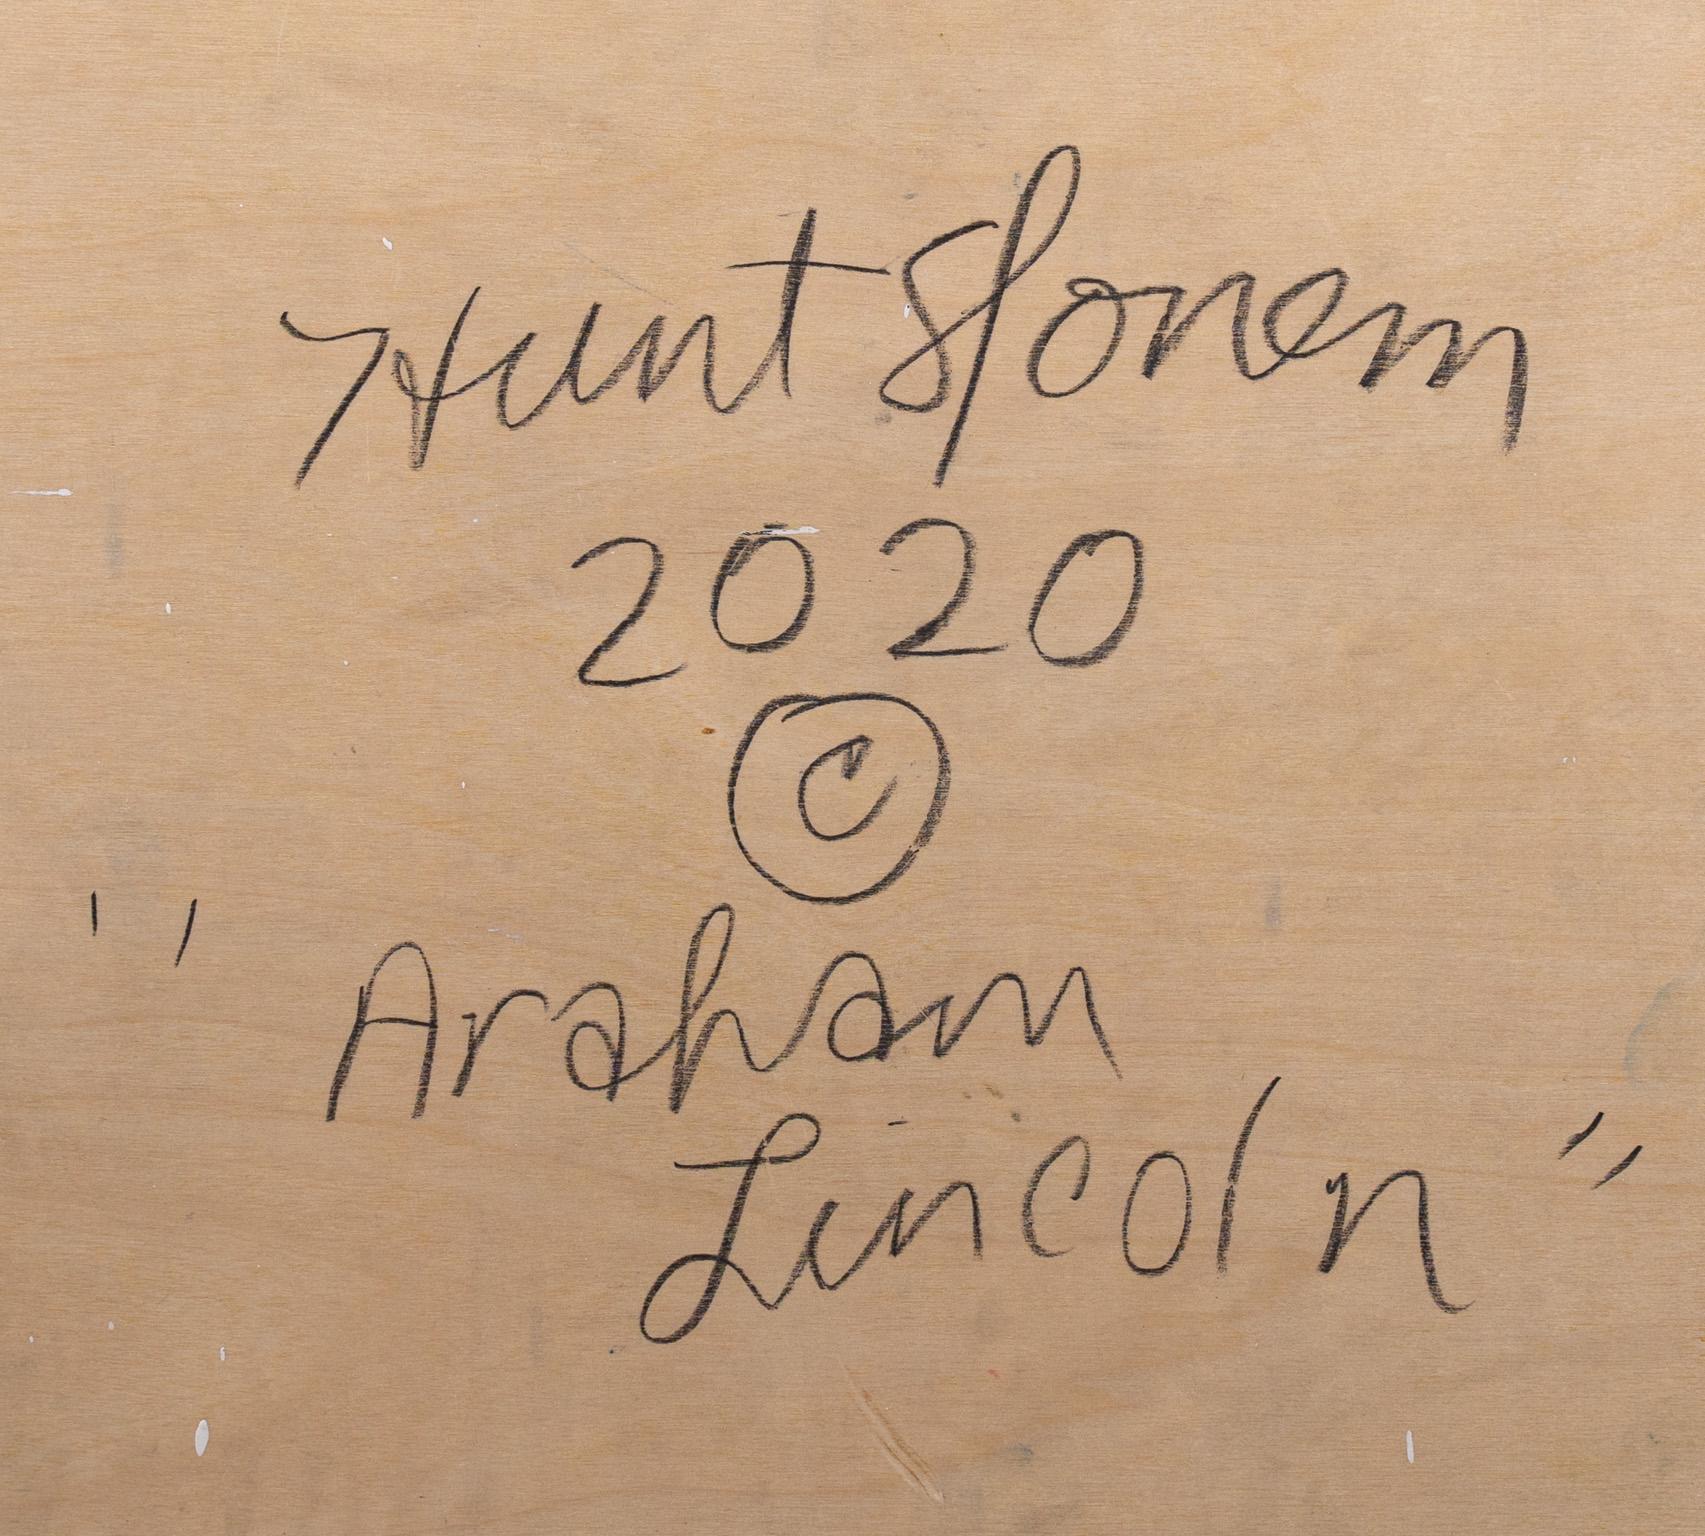 Hunt Slonem
2020
©
"Araham
Lincoln"